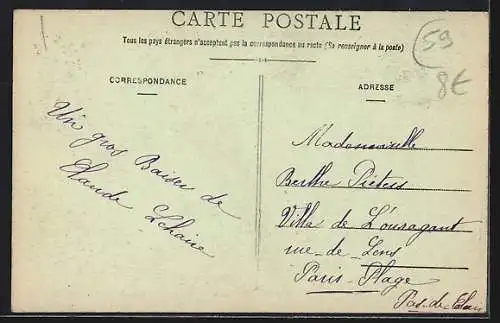 CARTE POSTALE
Tous les pays étrangers n'acceptent pas la correspondance au recto (Se renseigner à la poste)
59
8€
CORRESPONDANCE
ADRESSE
Un gros Baiser de
Claude
Mademoiselle
Berthe Pieters
Villa de L'ouragant
rue de Lens
Paris-Plage
Pas-de-Calais